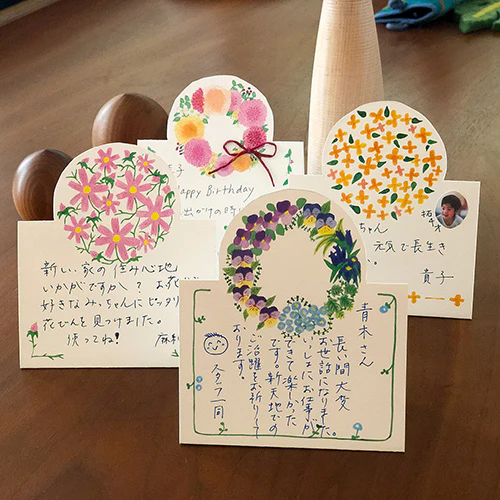 新しい家の住み心地
いかがですか？お花が
好きなみっちゃんにピッタリ
花びんを見つけました。
使ってね！
麻
子
Happy Birthday
出かけの時
ちゃん
元気で長生き
貴子
青木さん
長い間大変
お世話になりました。
いっしょにお仕事が
できて楽しかった
です。新天地での
ご活躍をお祈りして
おります。
一同